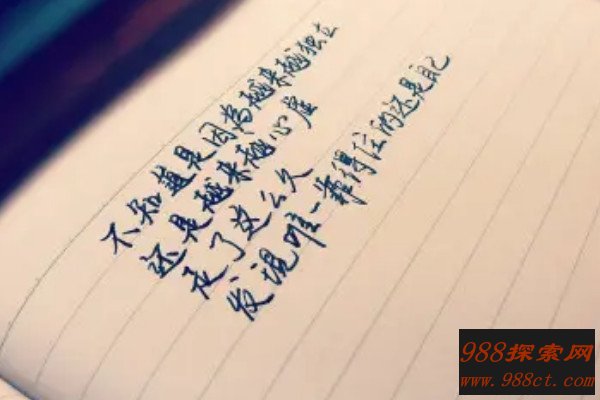 不知道是因为越来越独立
还是越来越心虚
走了这么久
发现唯一靠得住的还是自己
988探索网
www.988ct.com